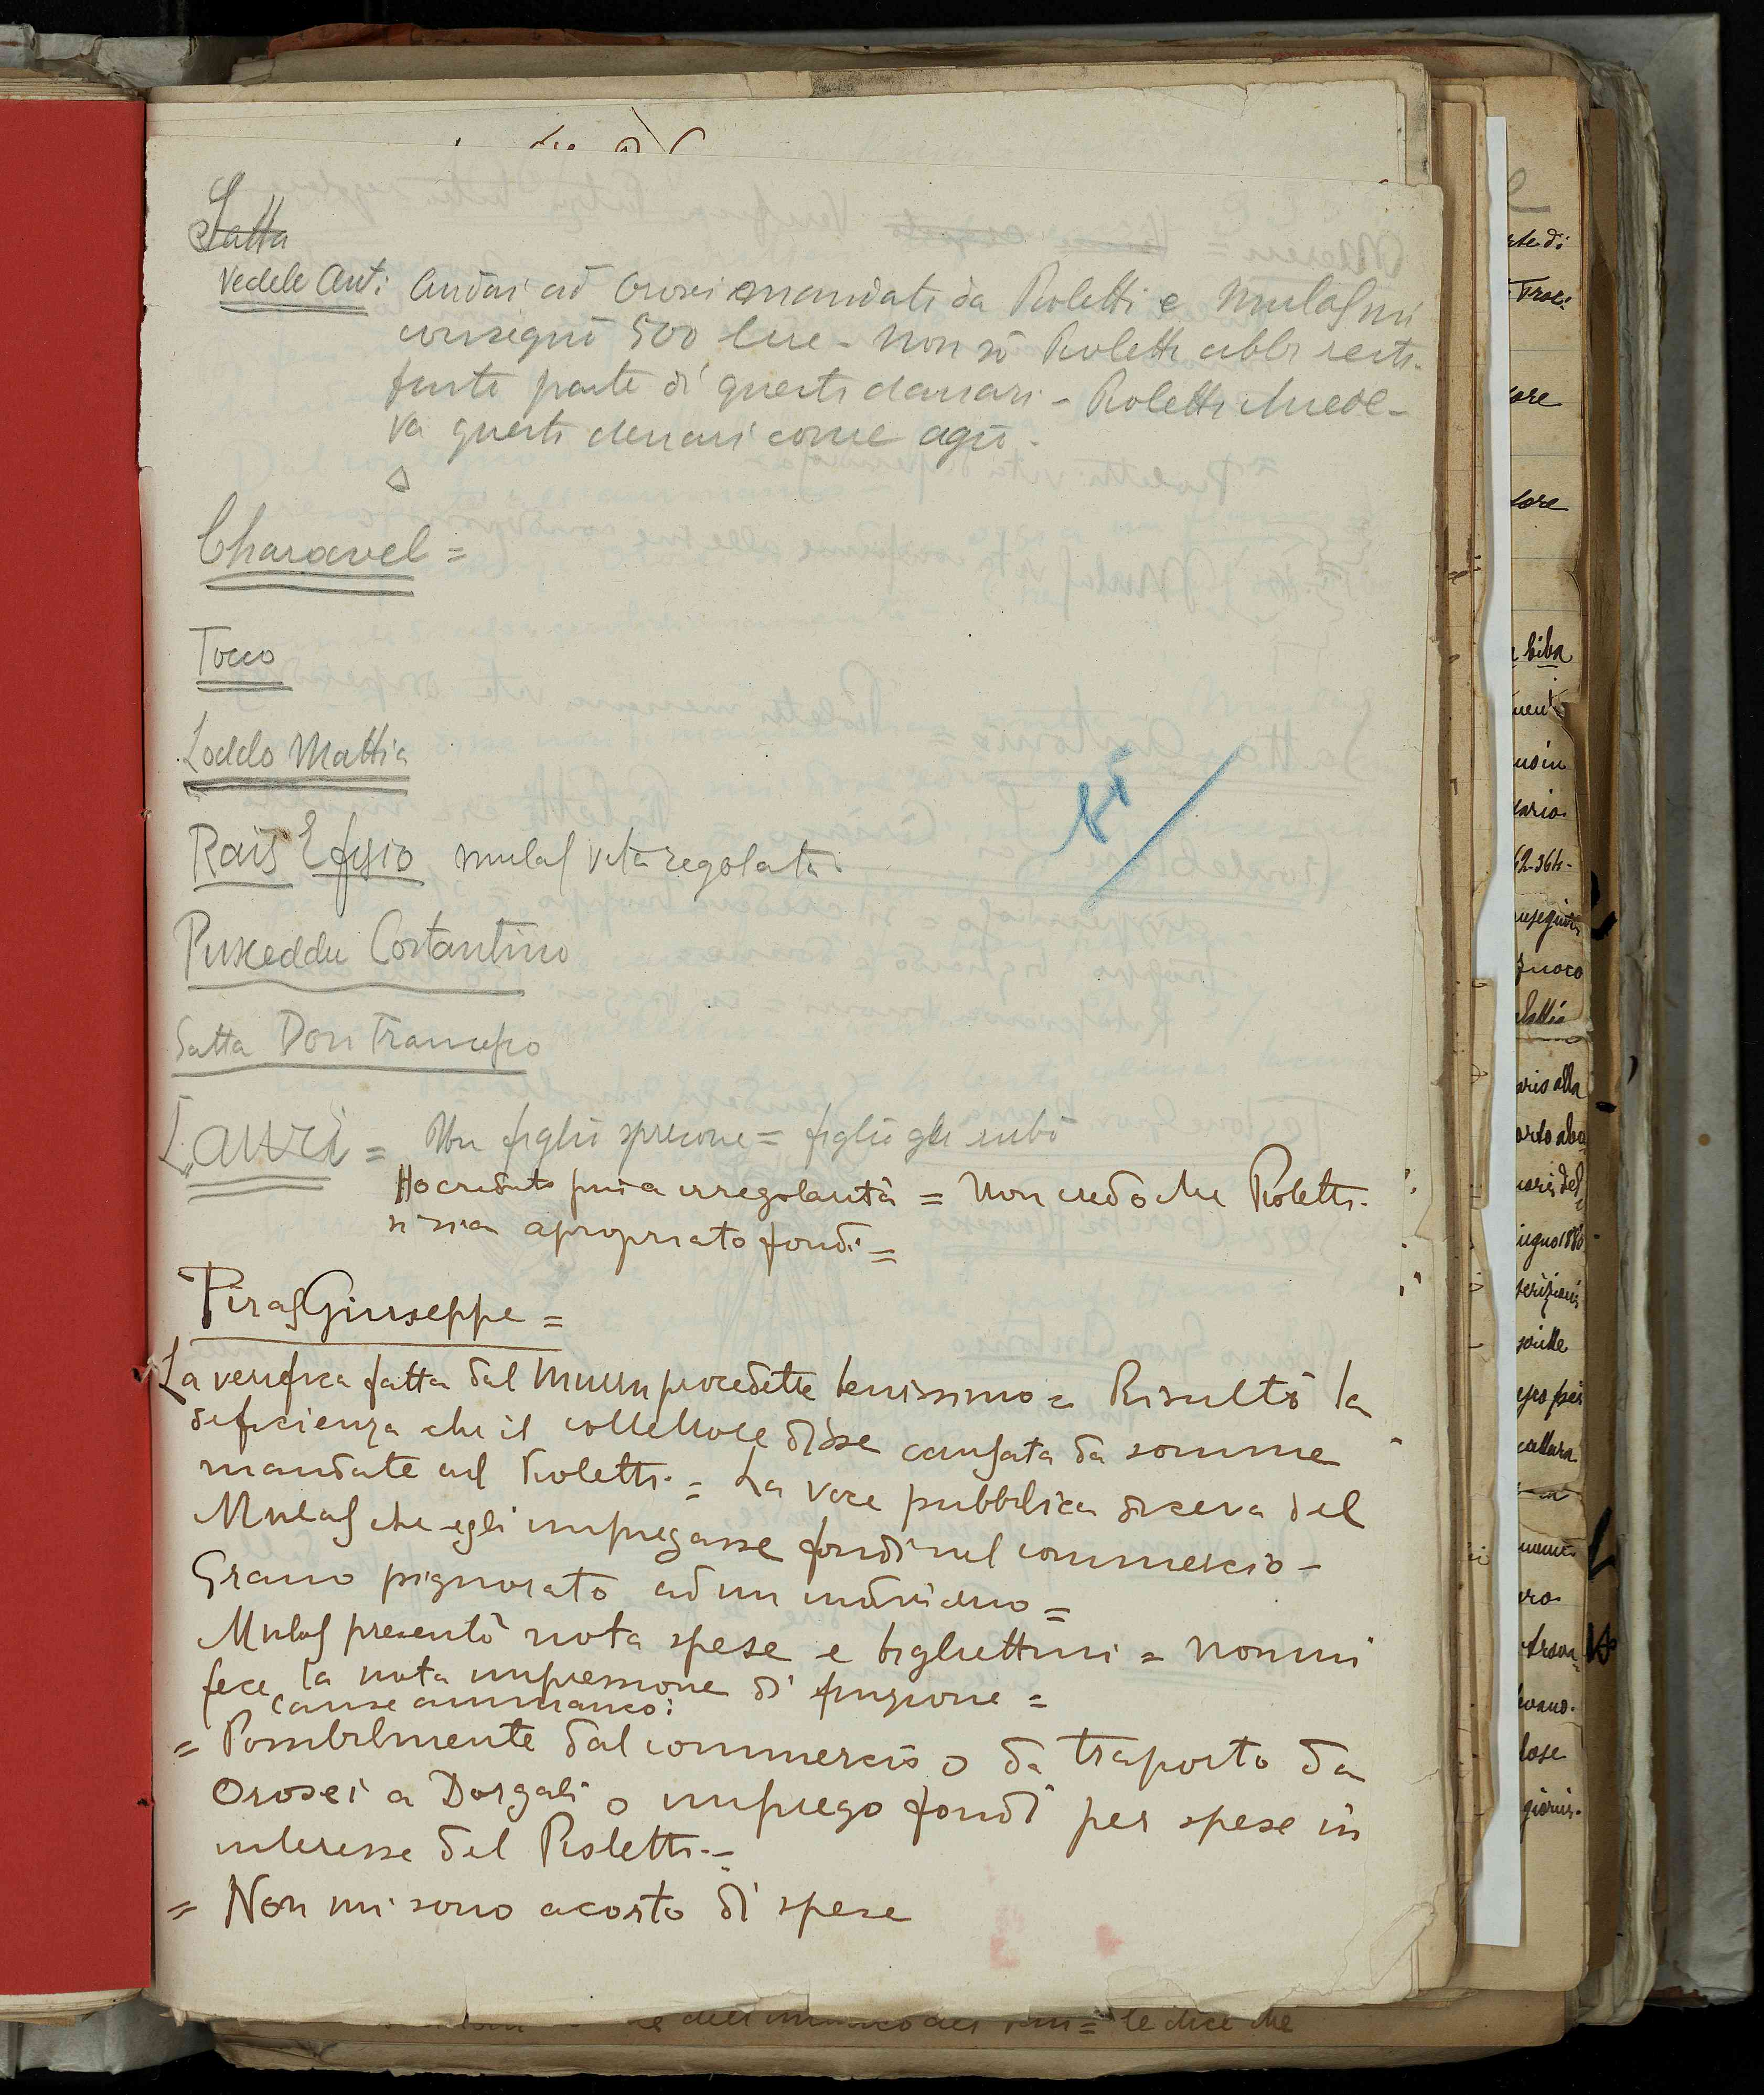 Satta
Vedele Ant: Andai ad Orosei mandato da Pioletti e Mulas mi
consegnò 500 lire - Non sò Pioletti abbia resti-
tuito parte di questi danari - Pioletti chiede-
va questi denari come agio -
Charavel =
Tocco
Loddo Mattia
Rais Efisio mulas vita regolata.
Puxeddu Costantino
Satta Don Francesco
Lauri = Un figlio sprecone = figlio gli rubò
Ho creduto pura irregolarità = Non credo che Pioletti
si sia apropriato fondi =
Piras Giuseppe =
La verifica fatta dal Mureu procedette benissimo = Risultò la
deficienza che il collettore disse causata da somme
mandate al Pioletti = La voce pubblica diceva del
Mulas che egli impiegasse fondi nel commercio -
Grano pignorato ad un individuo =
Mulas presentò nota spese e bigliettini = Non mi
fece la nota impressione di finzione =
cause ammanco:
= Possibilmente dal commercio o da traporto da
Orosei a Dorgali o impiego fondi per spese in
interesse del Pioletti -
= Non mi sono acorto di spese